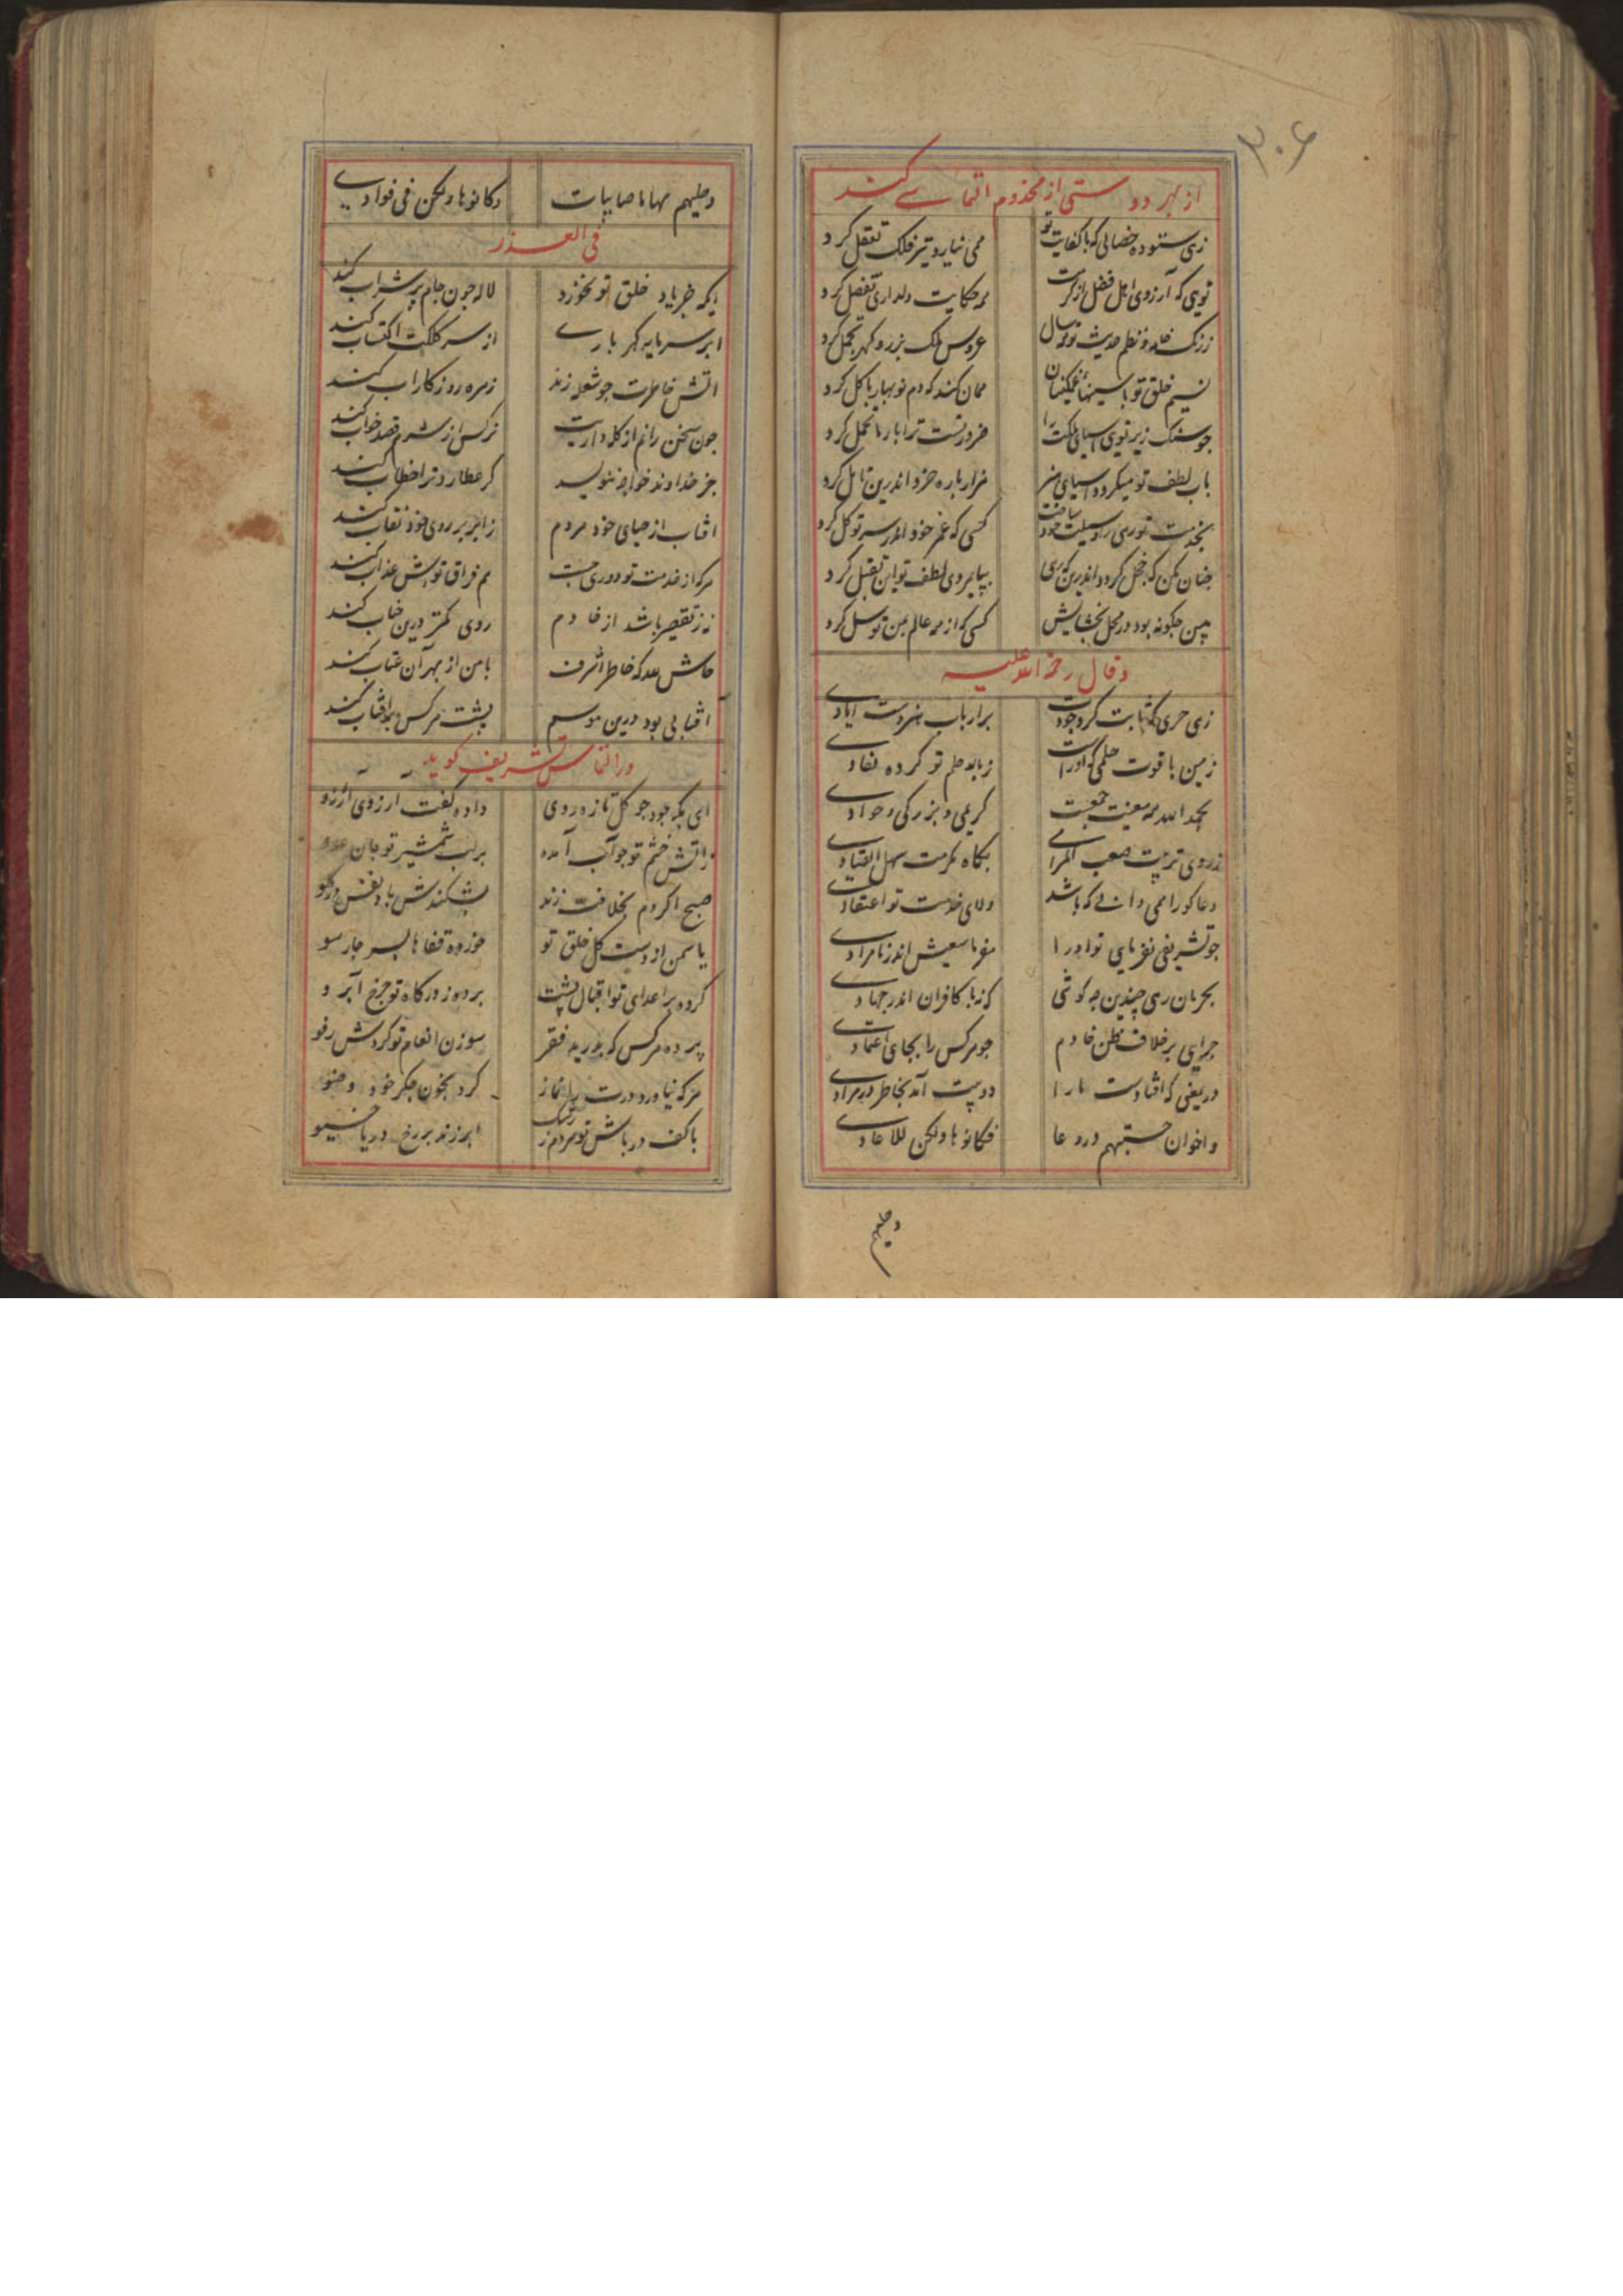 ۳۰۶
از بهر دوستی از مخدوم التماسی کند
زهی ستوده خصالی که با کفایت تو
همی نیارد تیر فلک تعقل کرد
تویی که آرزوی اهل فضل از کرمت
همه حکایت دلداری تفضل کرد
ز رنگ خامه و نظم حدیث تو همه سال
عروس ملک بزر و کهر تجمل کرد
نسیم خلق تو با سینهای غمکینان
همان کند که دم نوبهار با کل کرد
جو سنک زیر تویی آسیای ملکت را
ضرورتست ترا بارها تحمل کرد
بآب لطف تو میکردد آسیای هنر
هزار باره خرد اندرین تامل کرد
بخدمت تو رهی را وسیلت خود ساخت
کسی که عمر خود اندر سر توکل کرد
جنان مکن که خجل کردد اندرین که رهی
بپایمردی لطف تو این تقبل کرد
ببین جکونه بود در محل بخشایش
کسی که از همه عالم بمن توسل کرد
وقال رحمة الله علیه
زهی حری که ثابت کرد جودت
بر ارباب هنر دست ایادی
زمین با قوت حلمی که او راست
زباد حلم تو کرده نفادی
بحمد الله همه معنیت جمعست
کریمی و بزرکی و جوادی
ز روی تربیت صعب المرامی
بکاه مکرمت سهل القیادی
دعاکو را همی دانی که باشد
ولای خدمت تو اعتقادی
جو تشریفی نفرمایی تو او را
مفرما سعیش اندر نامرادی
بحرمان رهی چندین چه کوشی
که نه با کافران اندر جهادی
جرایی بر خلاف ظن خادم
جو هر کس را بجای اعتمادی
درین معنی که افتادست ما را
دو بیت آمد بخاطر در مرادی
واخوان حسبتهم دروعا
فکانوها ولکن للاعادی
وخلیهم
وخلتهم سهاما صایبات
وکانوها ولکن فی فوادی
فی العذر
ایکه بر یاد خلق تو نخورد
لاله جون جام پر شراب کند
ابر سرمایه کهر باری
از سر کلکت اکتساب کند
آتش خاطرت جو شعله زند
زهره روزکار آب کند
جون سخن رانم از کله داریت
نرکس از شرم قصد خواب کند
جز خداوند خواجه ننویسد
کر عطارد ترا خطاب کند
آفتاب از حیای خود هر دم
ز ابر بر روی خود نقاب کند
هر که از خدمت تو دوری جست
هم فراق تواش عذاب کند
نه ز تقصیر باشد از خادم
روی کمتر درین جناب کند
حاش لله که خاطر اشرف
با من از بهر آن عتاب کند
آفتابی بود درین موسم
پشت هر کس بآفتاب کند
در التماس تشریف کوید
ای بکه جود جو کل تازه روی
داده کفت آرزوی آرزو
ز آتش خشم تو جو آب آمده
بر لب شمشیر تو جان عدو
صبح اکر دم بخلافت زند
بشکندش باد نفس در کلو
یاسمن از دست کل خلق تو
خورده قفاها بسر جار سو
کرده بر اعدای تو اقبال پشت
برده ز درکاه تو جرخ آبرو
پرده هر کس که بدرید فقر
سوزن انعام تو کردش رفو
هر که نیاورد درت را نماز
کرد بخون جکر خود وضو
با کف در پاش تو هر دم ز رشک
ابر زند بر رخ دریا خیو